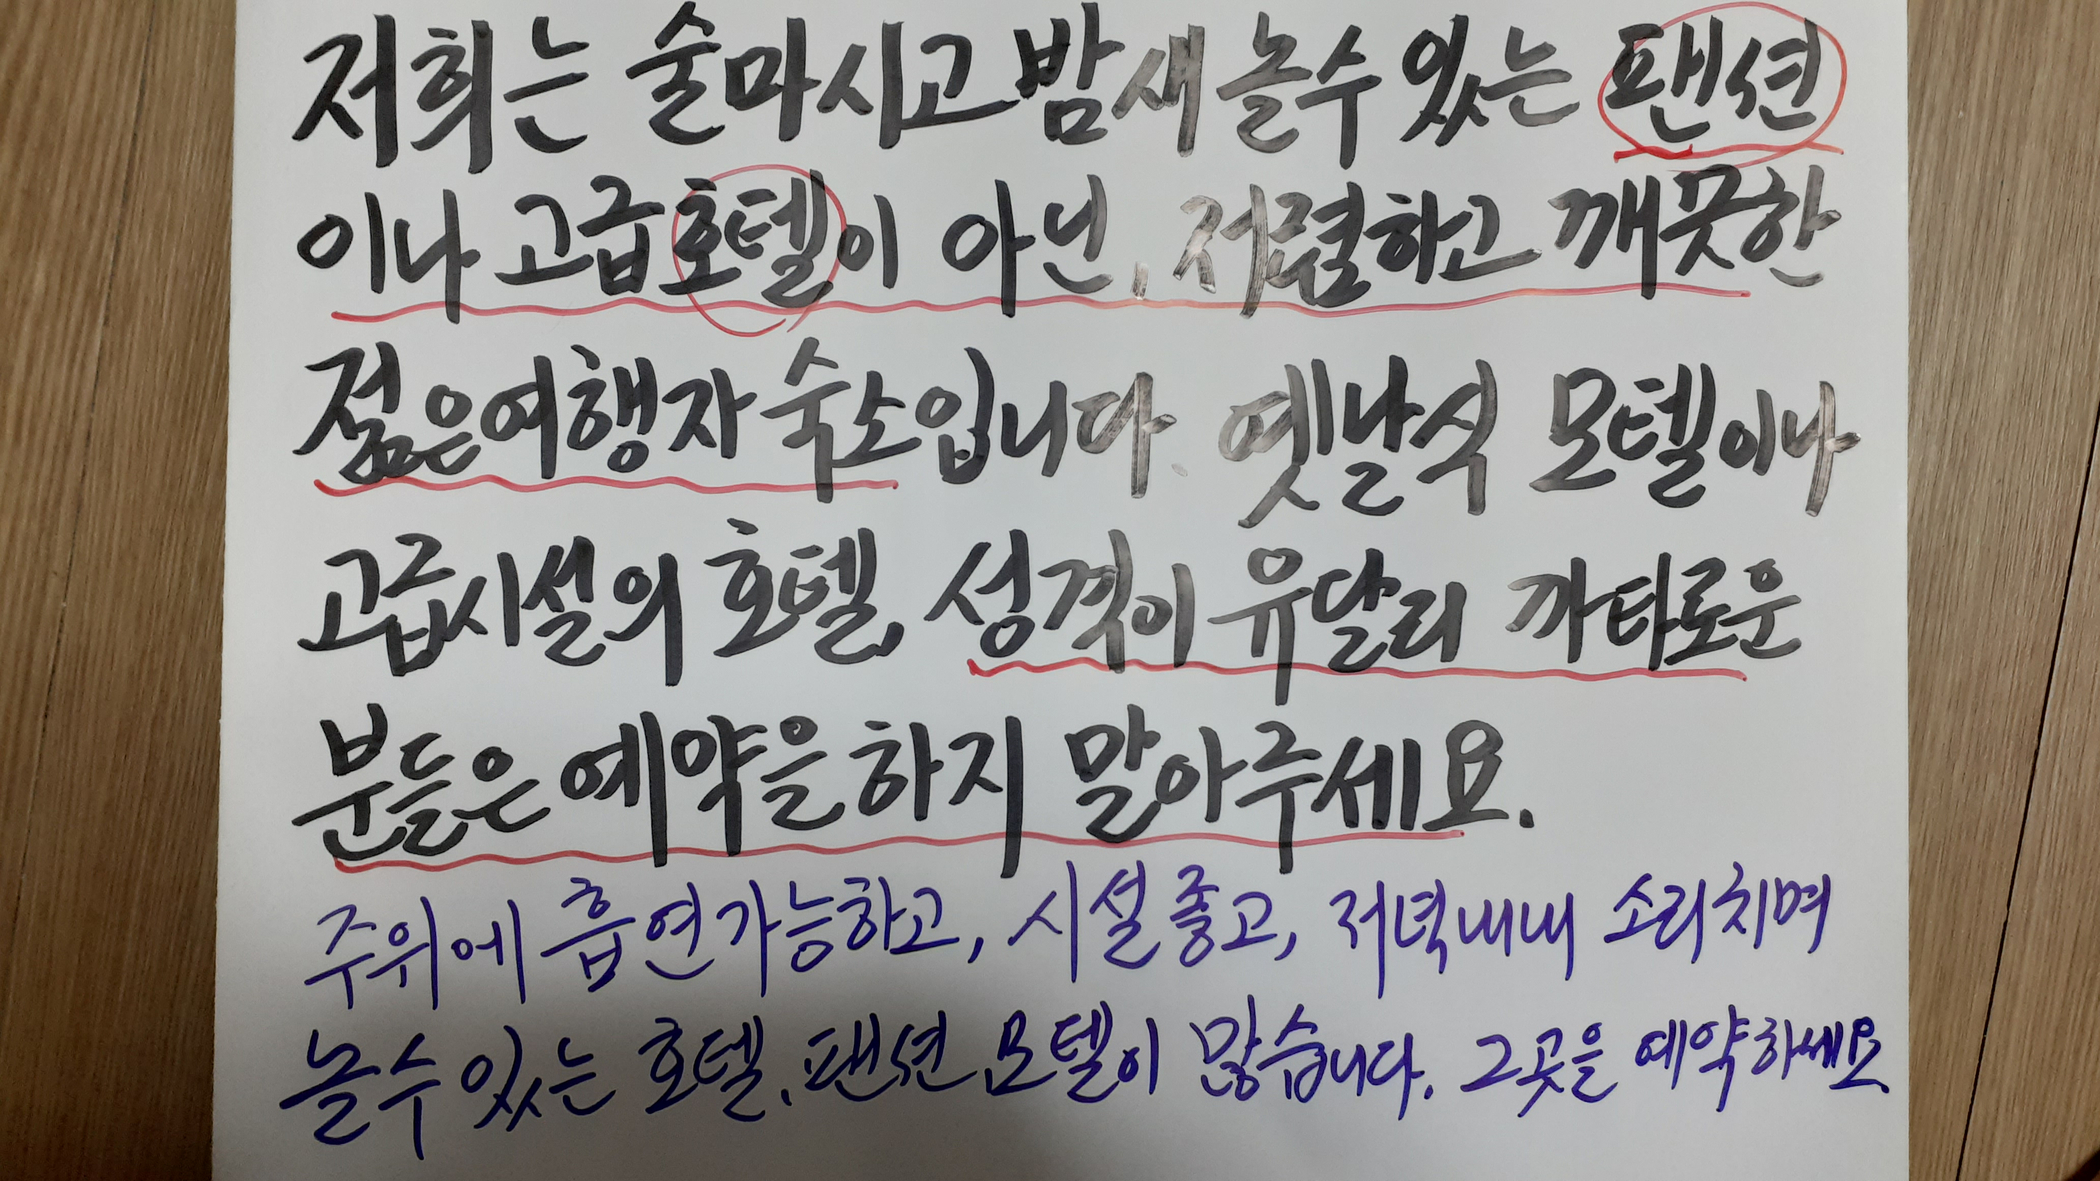 저희는 술마시고 밤새 놀수 있는 팬션
이나 고급호텔이 아닌, 저렴하고 깨끗한
젊은여행자 숙소입니다. 옛날식 모텔이나
고급시설의 호텔, 성격이 유달리 까타로운
분들은 예약을하지 말아주세요.
주위에 흡연가능하고, 시설좋고, 저녁내내 소리치며
놀수 있는 호텔, 팬션, 모텔이 많습니다. 그곳을 예약하세요.